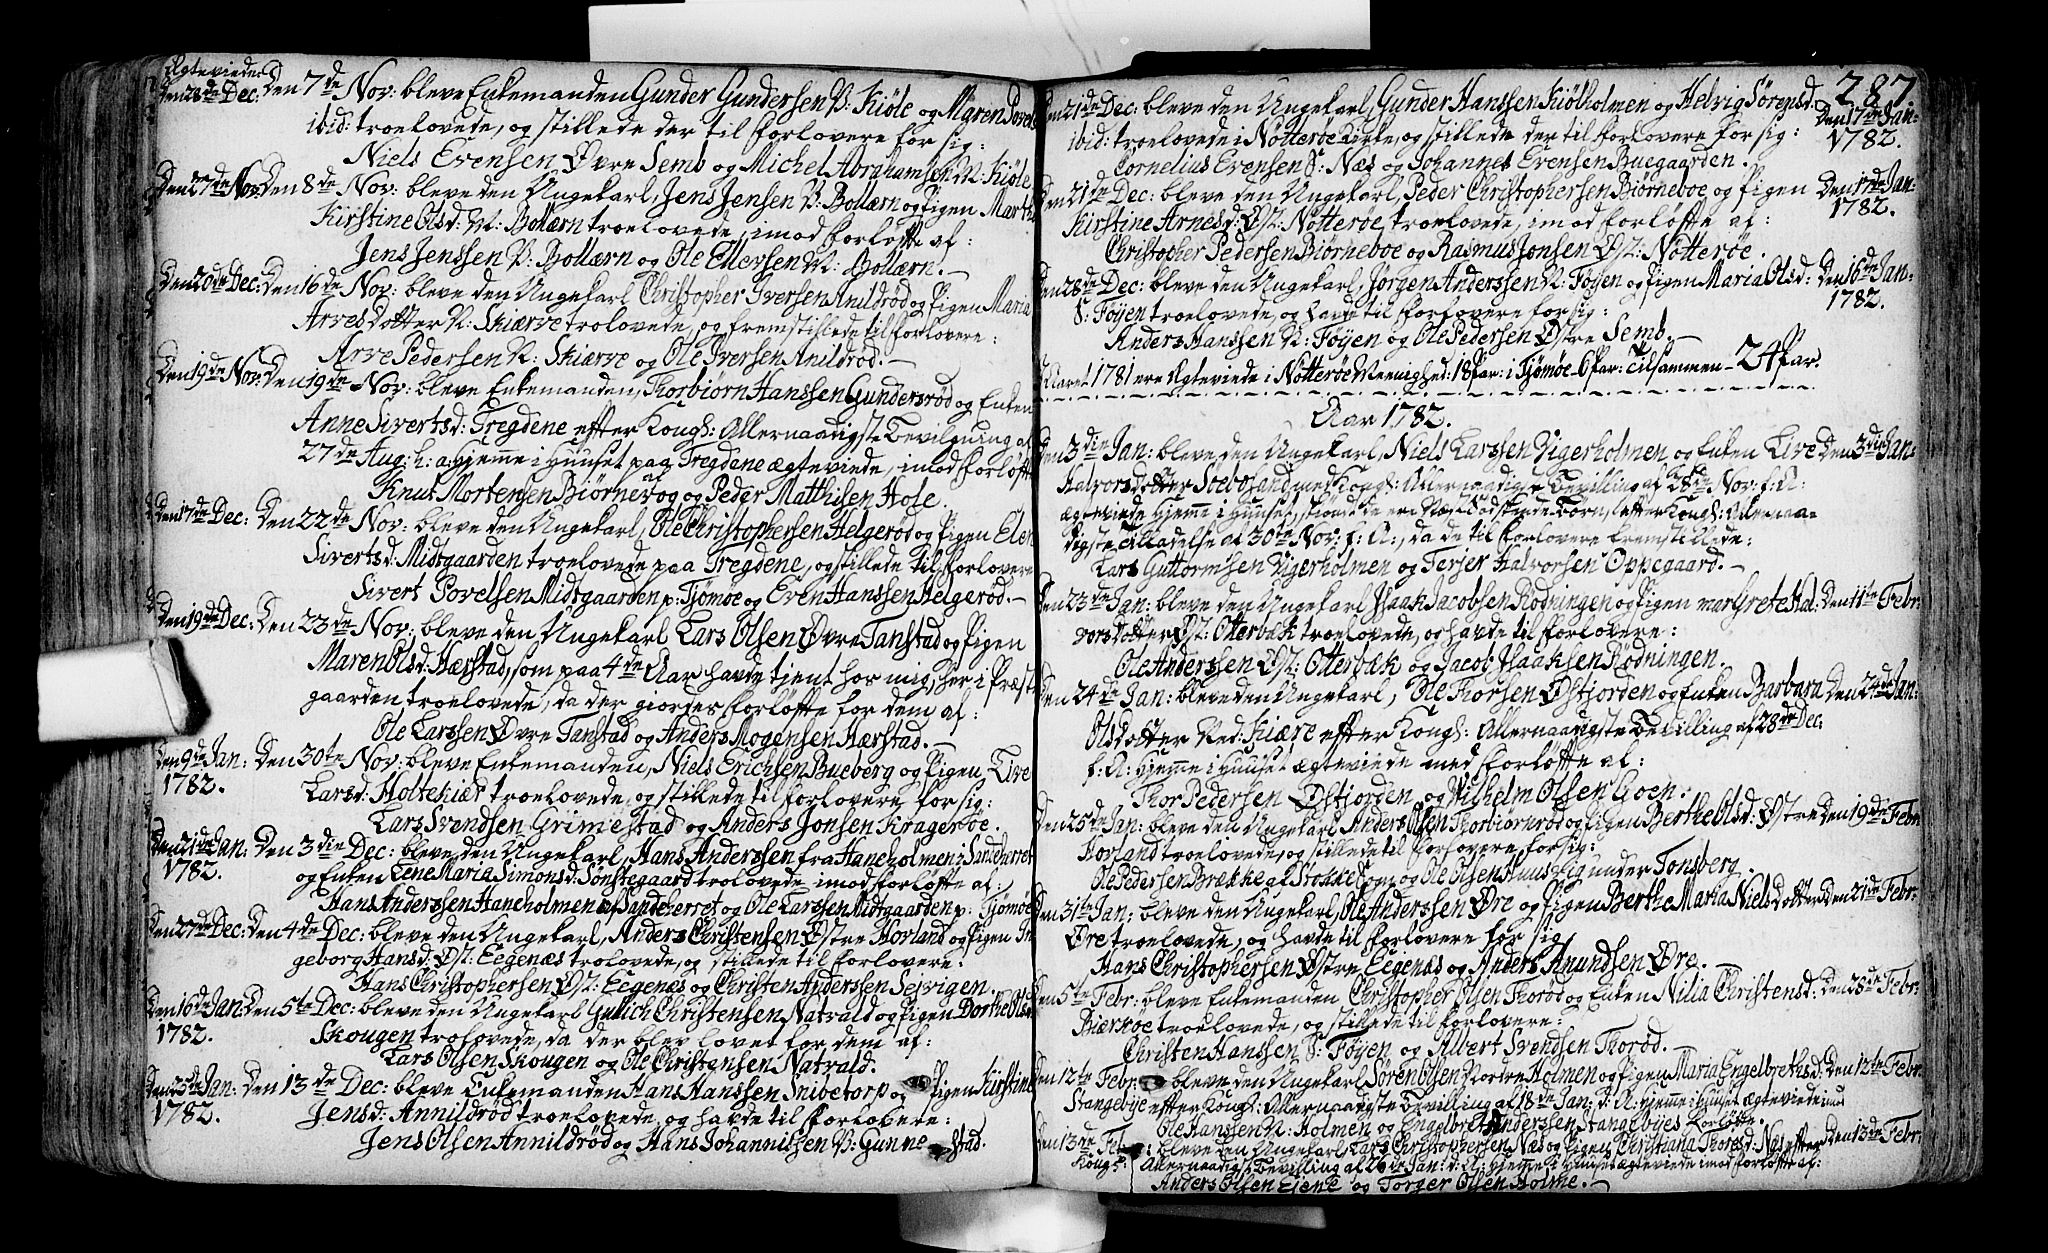 Ægteviede
den 28de Dec: Den 7de Nov: bleve Enkemanden Gunder Gundersen V: Kiøle og Maren Povels
ibid: troelovede, og stillede der til Forlovere for sig:
Niels Evensen Øvre Semb og Michel Abrahamsen N: Kiøle
Den 27de Nov: Den 8de Nov: bleve den Ungekarl, Jens Jensen V: Bollærn og Pigen Marth
Kirstine Olsd: N: Bollærn troelovede, imod Forløfte af:
Jens Jenssen V: Bollærn og Ole Ellersen N: Bollærn.
Den 20de Dec: Den 16de Nov: bleve den Ungekarl Christopher Iversen Anildrød og Pigen Maria
Arves Dotter N: Skiærve trolovede, og fremstillede til Forlovere:
Arve Pedersen N: Skiærve og Ole Iversen Anildrød.
Den 19de Nov: Den 19de Nov: bleve Enkemanden, Thorbiørn Hanssen Gundersrød og Enken
Anne Siverts d: Tregdene effter Kongl: Allernaadigste Bevilgning af
27de Aug: h: a: hjemme i Huuset paa Tregdene ægteviede, imod Forløfte
af
Knut Mortensen Biørnevog og Peder Matthisen Hole.
Den 17de Dec: Den 22de Nov: bleve den Ungekarl, Ole Christophersen Helgerød og Pigen Elen
Siverts d: Midtgaarden troelovede paa Tregdene, og stillede til Forlovere
Sivert Povelsen Midtgaarden p: Tjømøe og Even Hanssen Helgerød.
Den 19de Dec: Den 23de Nov: bleve den Ungekarl Lars Olsen Øvre Tanstad og Pigen
Maren Ols d: Hærstad, som paa 4de Aar havde tjent hos mig, her i Præste
gaarden troelovede, da der giordes Forløfte for dem af:
Ole Larssen Øvre Tanstad og Anders Mogensen Hærstad.
Den 9de Jan: Den 30te Nov: bleve Enkemanden, Niels Erichsen Bueberg og Pigen, Live
1782. Lars d: Holtekiær troelovede, og stillede til Forlovere for sig:
Lars Svendsen Grimestad og Anders Jonsen Kragerøe.
Den 21de Jan: Den 3die Dec: bleve den Ungekarl, Hans Anderssen fra Haneholmen i Sandeherret
1782. og Enken Lene Maria Simonsd: Sønstegaard trolovede imod Forløfte af:
Hans Anderssen Haneholmen af Sandeherret og Ole Larssen Midtgaarden p: Tjømøe
Den 27de Dec: Den 4de Dec: bleve den Ungekarl, Anders Christensen Østre Horland og Pigen In
geborg Hansd: Øst: Eegenæs trolovede, og stillede til Forlovere:
Hans Christophersen Øst: Eegenæs og Christen Anderssen Sejvigen.
Den 16de Jan: Den 5te Dec: bleve den Ungekarl Gullich Christensen Natvald og Pigen Dorthe Olsd
1782. Skougen trolovede, da der blev lovet for dem af:
Lars Olsen Skougen og Ole Christensen Natvald.
Den 25de Jan: Den 13de Dec: bleve Enkemanden Hans Hanssen Snibetorp og Pigen Kirstine
1782. Jens d: Annildrød troelovede, og havde til Forlovere:
Jens Olsen Annildrød og Hans Johannissen V: Gunnestad.
287.
Den 21de Dec: bleve den Ungekarl, Gunder Hanssen Kiølholmen og Helvig Sørensd: Den 17de Jan:
ibid: troelovede i Nøtterøe Kirke, og stillede der til Forlovere for sig: 1782.
Cornelius Evensen S: Næs og Johannes Evensen Buegaarden.
Den 21de Dec: bleve den Ungekarl, Peder Christophersen Biørneboe og Pigen Den 17de Jan:
Kirstine Arnes d: Øst: Nøtterøe troelovede, imod Forløffte af: 1782.
Christopher Pedersen Biørneboe og Rasmus Jonsen Øst: Nøtterøe.
Den 28de Dec: bleve den Ungekarl, Jørgen Anderssen N: Føyen og Pigen Maria Olsd: Den 16de Jan:
S: Føyen troelovede, og havde til Forlovere for sig: 1782.
Anders Hanssen N: Føyen og Ole Pedersen Østre Semb.
I Aaret 1781 ere Ægteviede i Nøtterøe Meenighed: 18 Par: i Tjømøe 6 Par: Tilsammen 24 Par.
Aar 1782.
Den 3die Jan: bleve den Ungekarl, Niels Larssen Vigerholmen og Enken Live Den 3die Jan:
Halvors Dotter Søebosand med Kongl: Allernaadigste Bevilling af 28de Nov: f: A:
ægteviede hjemme i Huuset, skiønt de ere Næst-Sødskende-Børn, effter Kongl: Allernaa-
digste Tilladelse af 30te Nov: f: A:, da de til Forlovere fremstillede:
Lars Guttormsen Vigerholmen og Terjer Halvorsen Oppegaard.
Den 23de Jan: bleve den Ungekarl Isaak Jacobsen Rødningen og Pigen Margrete Hal- Den 11te Febr:
vors Dotter Øst: Otterbæk troelovede, og havde til Forlovere:
Ole Anderssen Øst: Otterbæk og Jacob Isaaksen Rødningen.
Den 24de Jan: bleve den Ungekarl, Ole Thorsen Østjorden og Enken Barbara Den 24de Jan:
Olsdotter Ned: Kiære effter Kongl: Allernaadigste Bevilling af 28de Dec:
f: A: hjemme i Huuset ægteviede med Forløfte af:
Thor Pedersen Østjorden og Wilhelm Olsen Goen.
Den 25de Jan: bleve den Ungekarl Anders Olsen Thorbiørnrød og Pigen Berthe Olsd: Østre Den 19de Febr:
Horland troelovede, og stillede til Forlovere for sig:
Ole Pedersen Brække af Stokke Sogn og Ole Olsen Huusvig under Tønsberg.
Den 31te Jan: bleve den Ungekarl, Ole Anderssen Øre og Pigen Berthe Maria Niels Dotter Den 21de Febr:
Øre troelovede, og havde til Forlovere for sig
Hans Christophersen Østre Eegenæs og Anders Anundsen Øre.
Den 5te Febr: bleve Enkemanden Christopher Olsen Thorød og Enken Nilia Christensd: Den 28de Febr:
Biærkøe troelovede, og stillede til Forlovere:
Christen Hanssen S: Føyen og Albert Svendsen Thorød.
Den 12te Febr: bleve den Ungekarl Søren Olsen Nordre Holmen og Pigen Maria Engelbrethsd: Den 12te Febr:
Stangebye effter Kongl: Allernaadigste Bevilling af 18de Jan: d: A: hjemme i Huuset ægteviede imod
Ole Hanssen N: Holmen og Engelbret Anderssen Stangebyes Forløfte.
Den 13de Feb: bleve den Ungekarl Lars Christophersen Næs og Pigen Christiana Thoresd: Næs effter Den 13de Febr:
Kongl: Allernaadigste Bevilling af 26de Jan: d: A: hjemme i Huuset ægteviede imod Forløffte af:
Anders Olsen Ejene og Torger Olsen Holme.